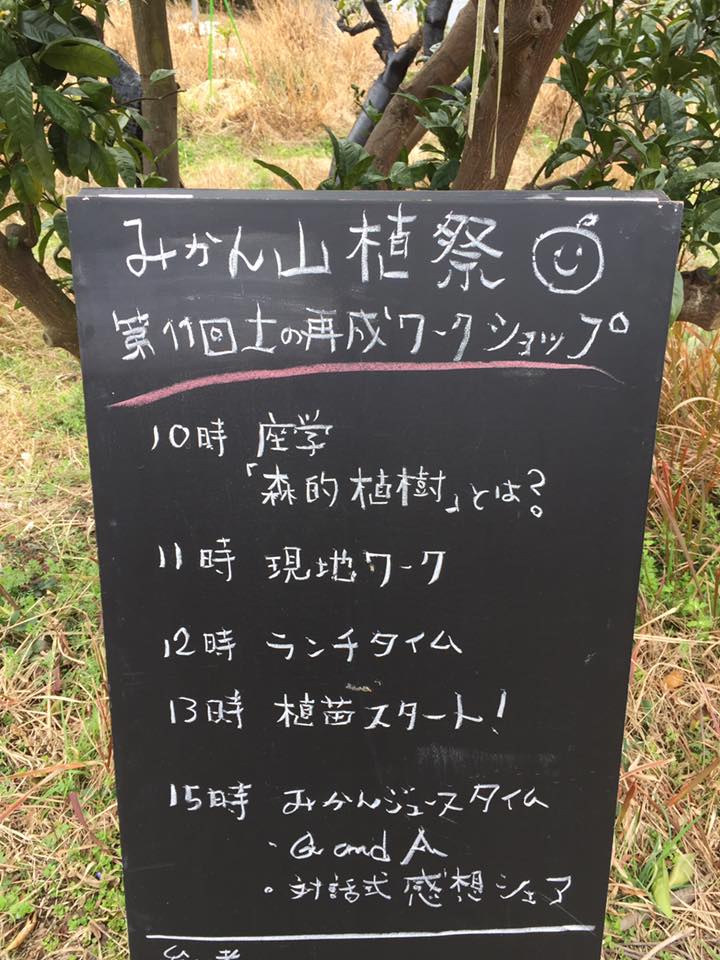 みかん山植祭
第11回土の再成ワークショップ
10時 座学
「森的植樹」とは?
11時 現地ワーク
12時 ランチタイム
13時 植苗スタート!
15時 みかんジュースタイム
・Q and A
・対話式 感想シェア